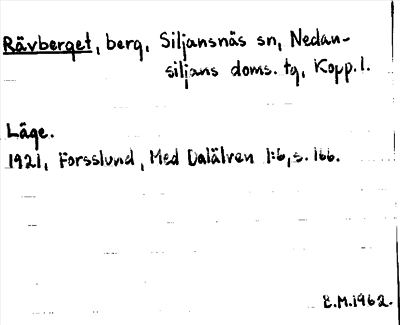 Rävberget, berg, Siljansnäs sn, Nedan-
siljans doms. tg, Kopp. l.
Läge.
1921, Forsslund, Med Dalälven 1:6, s. 166.
E.M.1962.